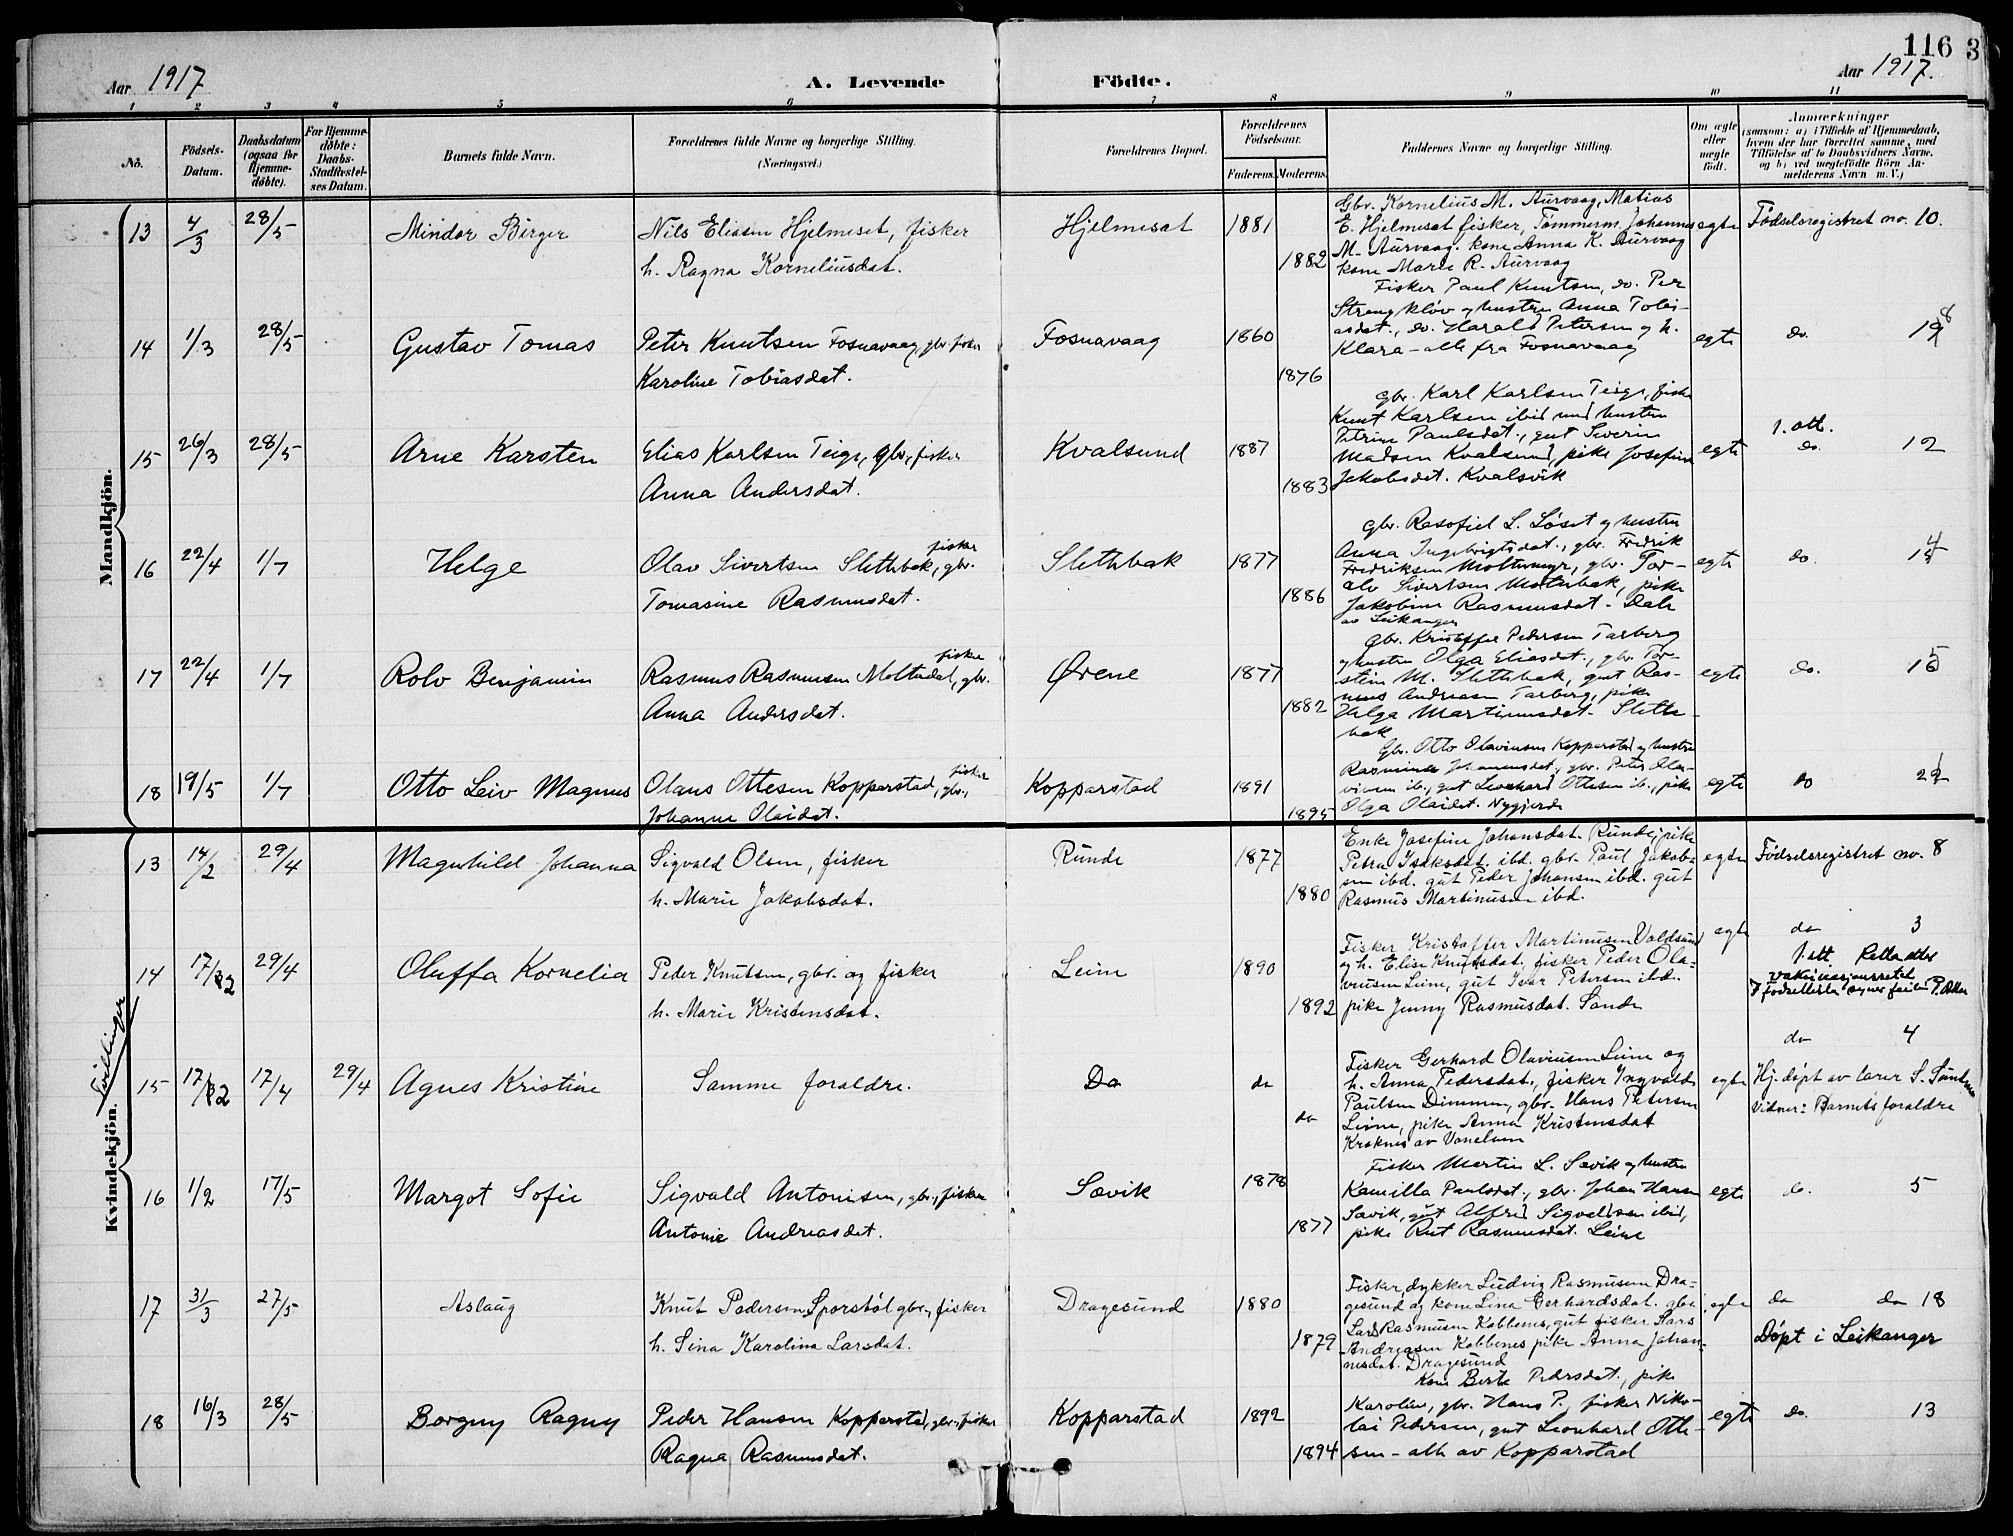 116 3
Aar 1917
A. Levende Födte.
Aar 1917.
1 2 3 4 5 6 7 8 9 10 11
No.
Födsels-Datum.
Daabsdatum (ogsaa for Hjemme-døbte).
For Hjemme-døbte: Daabs-Stadfæstel-ses Datum.
Barnets fulde Navn.
Forældrenes fulde Navne og borgerlige Stilling.
(Næringsvei.)
Forældrenes Bopæl.
Forældrenes Födselsaar.
Faderens. Moderens.
Faddernes Navne og borgerlige Stilling.
Om ægte eller uægte født.
Anmærkninger
(saasom: a) i Tilfælde af Hjemmedaab, hvem der har forrettet samme, med Tilföielse af to Daabsvidners Navne, og b) ved uægtefödte Börn An-melderens Navn m. V.)
Mandkjön.
13 4/3 28/5 Mindor Birger
Nils Eliasen Hjelmeset, fisker
h. Ragna Korneliusdat.
Hjelmeset 1881 1882
Gbr. Kornelius M. Aurvaag, Matias
E. Hjelmeset fisker, Tömmerm. Johannes
M. Aurvaag. kone Anna K. Aurvaag
kone Marie R. Aurvaag
egte Födselsregistret no. 10.
14 1/3 28/5 Gustav Tomas
Peter Knutsen Fosnavaag, gbr. fisker
Karoline Tobiasdat.
Fosnavaag 1860 1876
Fisker Paul Knutsen, do. Per
Strengkløv og hustru Anna Tobi-
asdat., do. Harald Petersen og h.
Klara - alle fra Fosnavaag
egte do. 18
15 26/3 28/5 Arne Karsten
Elias Karlsen Teige, gbr., fisker
Anna Andersdat.
Kvalsund 1887 1883
gbr. Karl Karlsen Teige, fisker
Knut Karlsen ibid med hustru
Petrine Paulsdat., gut Severin
Madsen Kvalsund, pike Josefine
Jakobsdat. Kvalsvik
egte 1. att.
do. 12
16 22/4 1/7 Helge
Olav Sivertsen Slettebak, fisker, gbr.
Tomasine Rasmusdat.
Slettebak 1877 1886
gbr. Rasofiel L. Løset og hustru
Anna Ingebrigtsdat., gbr. Fredrik
Fredriksen Moltumyr, gbr. Tor-
alv Sivertsen Moltubak, pike
Jakobine Rasmusdat - Dale
av Leikanger
egte do. 14
17 22/4 1/7 Rolv Benjamin
Rasmus Rasmussen Moltudal, fisker, gbr.
Anna Andersdat.
Ørene 1877 1882
gbr. Kristoffer Pedersen Tarberg
og hustru Olga Eliasdat., gbr. Tor-
stein M. Slettebak, gut Ras-
mus Andreasen Tarberg, pike
Helga Martinusdat. Slette-
bak
egte do. 15
18 19/5 1/7 Otto Leiv Magnus
Olaus Ottesen Kopparstad, fisker, gbr.,
Johanne Olaidat.
Kopparstad 1891 1895
Gbr. Otto Olavinsen Kopparstad og hustru
Rasmine Johannesdat., gbr. Peter Ola-
vinsen ib., gut Leonhard Ottesen ib., pike
Olga Olaidat. Nygjerde
egte do 22
Kvindekjön.
13 14/2 29/4 Magnhild Johanna
Sigvald Olsen, fisker
h. Marie Jakobsdat.
Runde 1877 1880
Enke Josefine Johansdat. Runde, pike
Petra Isaksdat. ibd. gbr. Paul Jakob-
sen ibd. gut Peder Johansen ibd. gut
Rasmus Martinusen ibd.
egte Födselsregistret no. 8
Tvillinger
14 17/2 29/4 Oluffa Kornelia
Peder Knutsen, gbr. og fisker
h. Marie Kristensdat.
Leine 1890 1892
Fisker Kristoffer Martinusen Voldsund
og h. Elise Knutsdat. fisker Peder Ola-
viusen Leine, gut Ivar Petersen ibd.
pike Jenny Rasmusdat. Sande
egte do 3
1. att. Retta etter
vaksinasjonsattest
15 17/2 17/4 29/4 Agnes Kristine
Samme foraldre.
Do do do
Fisker Gerhard Olaviusen Leine og
h. Anna Pedersdat., fisker Ingvald
Paulsen Dimmen, gbr. Hans Petersen
Leine, pike Anna Kristensdat
Kraknes av Vanelven
egte do 4
Hj. døpt av lærer S.
Vidner: Barnets foraldre
16 1/2 17/5 Margot Sofie
Sigvald Antonisen, gbr., fisker
Antonie Andreasdat.
Sævik 1878 1877
Fisker Martin L. Sævik og hustru
Kamilla Paulsdat., gbr. Johan Hansen
Sævik, gut Alfred Sigvaldsen ibid,
pike Rut Rasmusdat. Leine
egte do. 5
17 31/3 27/5 Aslaug
Knut Pedersen Sporstøl gbr., fisker
h. Sina Karolina Larsdat.
Dragesund 1880 1879
Fisker, dykker Ludvig Rasmusen Dra-
gesund og kone Lina Gerhardsdat. gbr.
Lars Rasmusen Kobbenes, gut fisker Lars
Andreasen Kobbenes pike Anna Johan-
nesdat. Dragesund
egte do do 18
Døpt i Leikanger
18 16/3 28/5 Borgny Ragny
Peder Hansen Kopparstad, gbr., fisker
Ragna Rasmusdat.
Kopparstad 1892 1894
Kone Berte Pedersdat., pike
Karoline, gbr. Hans P., fisker Niko-
lai Pedersen, gut Leonhard Otte-
sen - alle av Kopparstad
egte do. 13